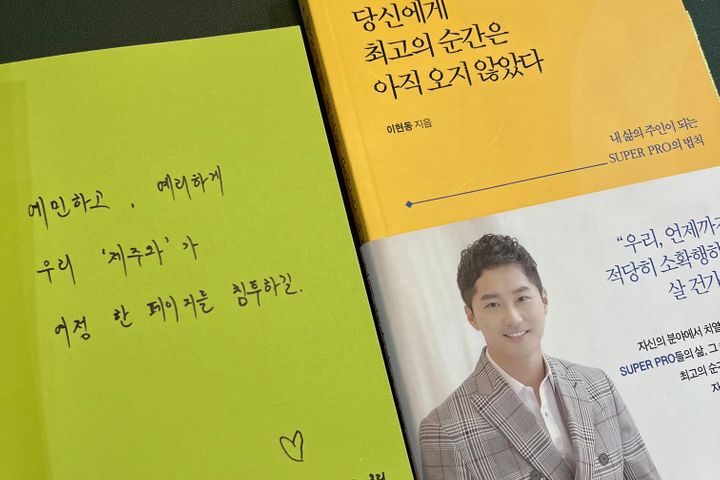 예민하고, 예리하게
우리 '제주와'가
여정 한 페이지를 침투하길.
당신에게
최고의 순간은
아직 오지 않았다
이현동 지음
내 삶의 주인이 되는
SUPER PRO의 법칙
“우리, 언제까지
적당히 소확행하
살 건가
자신의 분야에서 치열
SUPER PRO들의 삶, 그
최고의 순간
자